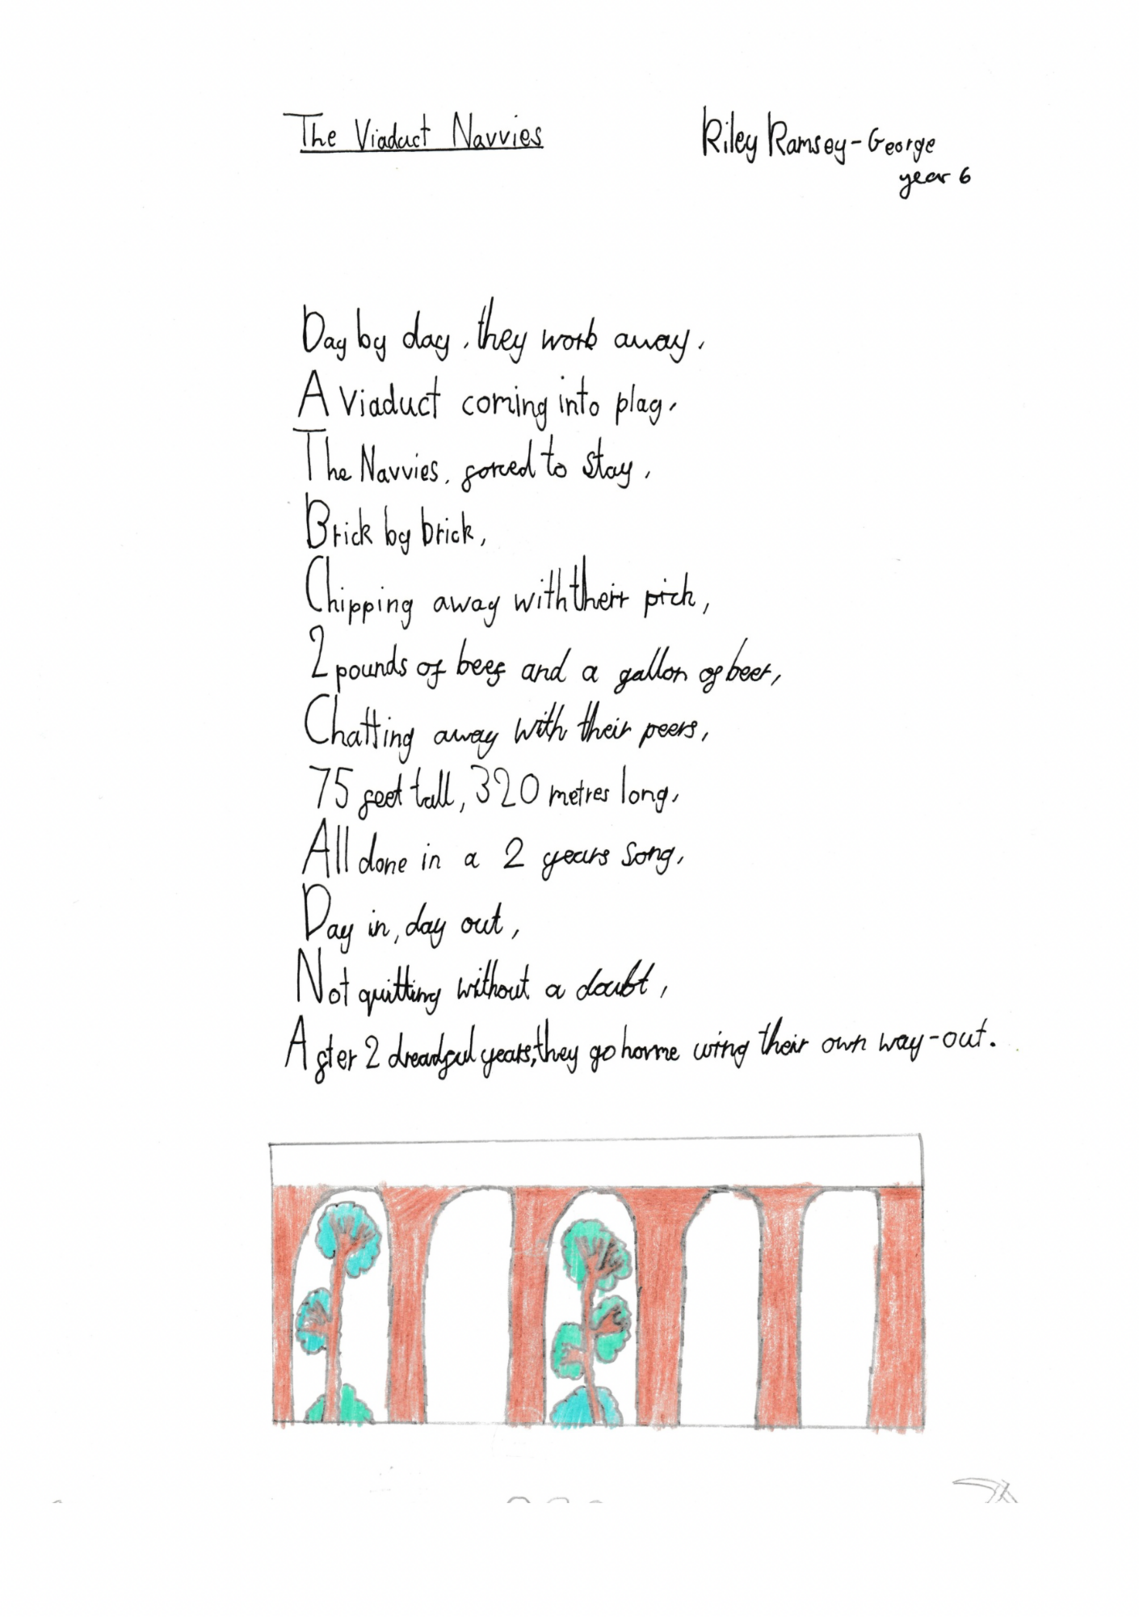 The Viaduct Navvies
Riley Ramsey-George
year 6
Day by day, they work away,
A Viaduct coming into play,
The Navvies, forced to stay,
Brick by brick,
Chipping away with their pick,
2 pounds of beef and a gallon of beer,
Chatting away with their peers,
75 feet tall, 320 metres long,
All done in a 2 years song,
Day in, day out,
Not quitting without a doubt,
After 2 dreadful years, they go home wing their own way-out.